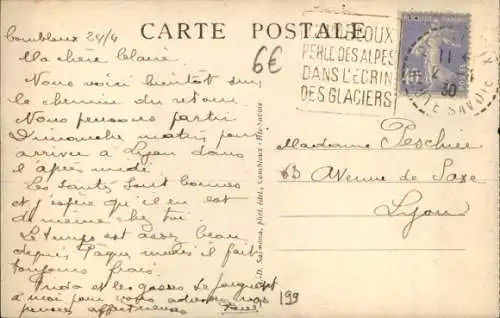 CARTE POSTALE
Combloux 24/4
Ma chère Claire
Nous voici bientôt sur
le chemin du retour.
Nous pensons partir
Dimanche matin pour
arriver à Lyon dans
l'après midi
Les santés sont bonnes
et j'espère qu'il en est
de même chez toi.
Le temps est assez beau
depuis Pâques mais il fait
toujours frais
et les gosses se joignent
à moi pour vous adresser nos
pensées affectueuses
6€
COMBLOUX
PERLE DES ALPES
DANS L'ÉCRIN
DES GLACIERS
11
30
HTE SAVOIE
Madame Peschier
63 Avenue de Saxe
Lyon
199
phot. édit., Combloux - Hte-Savoie